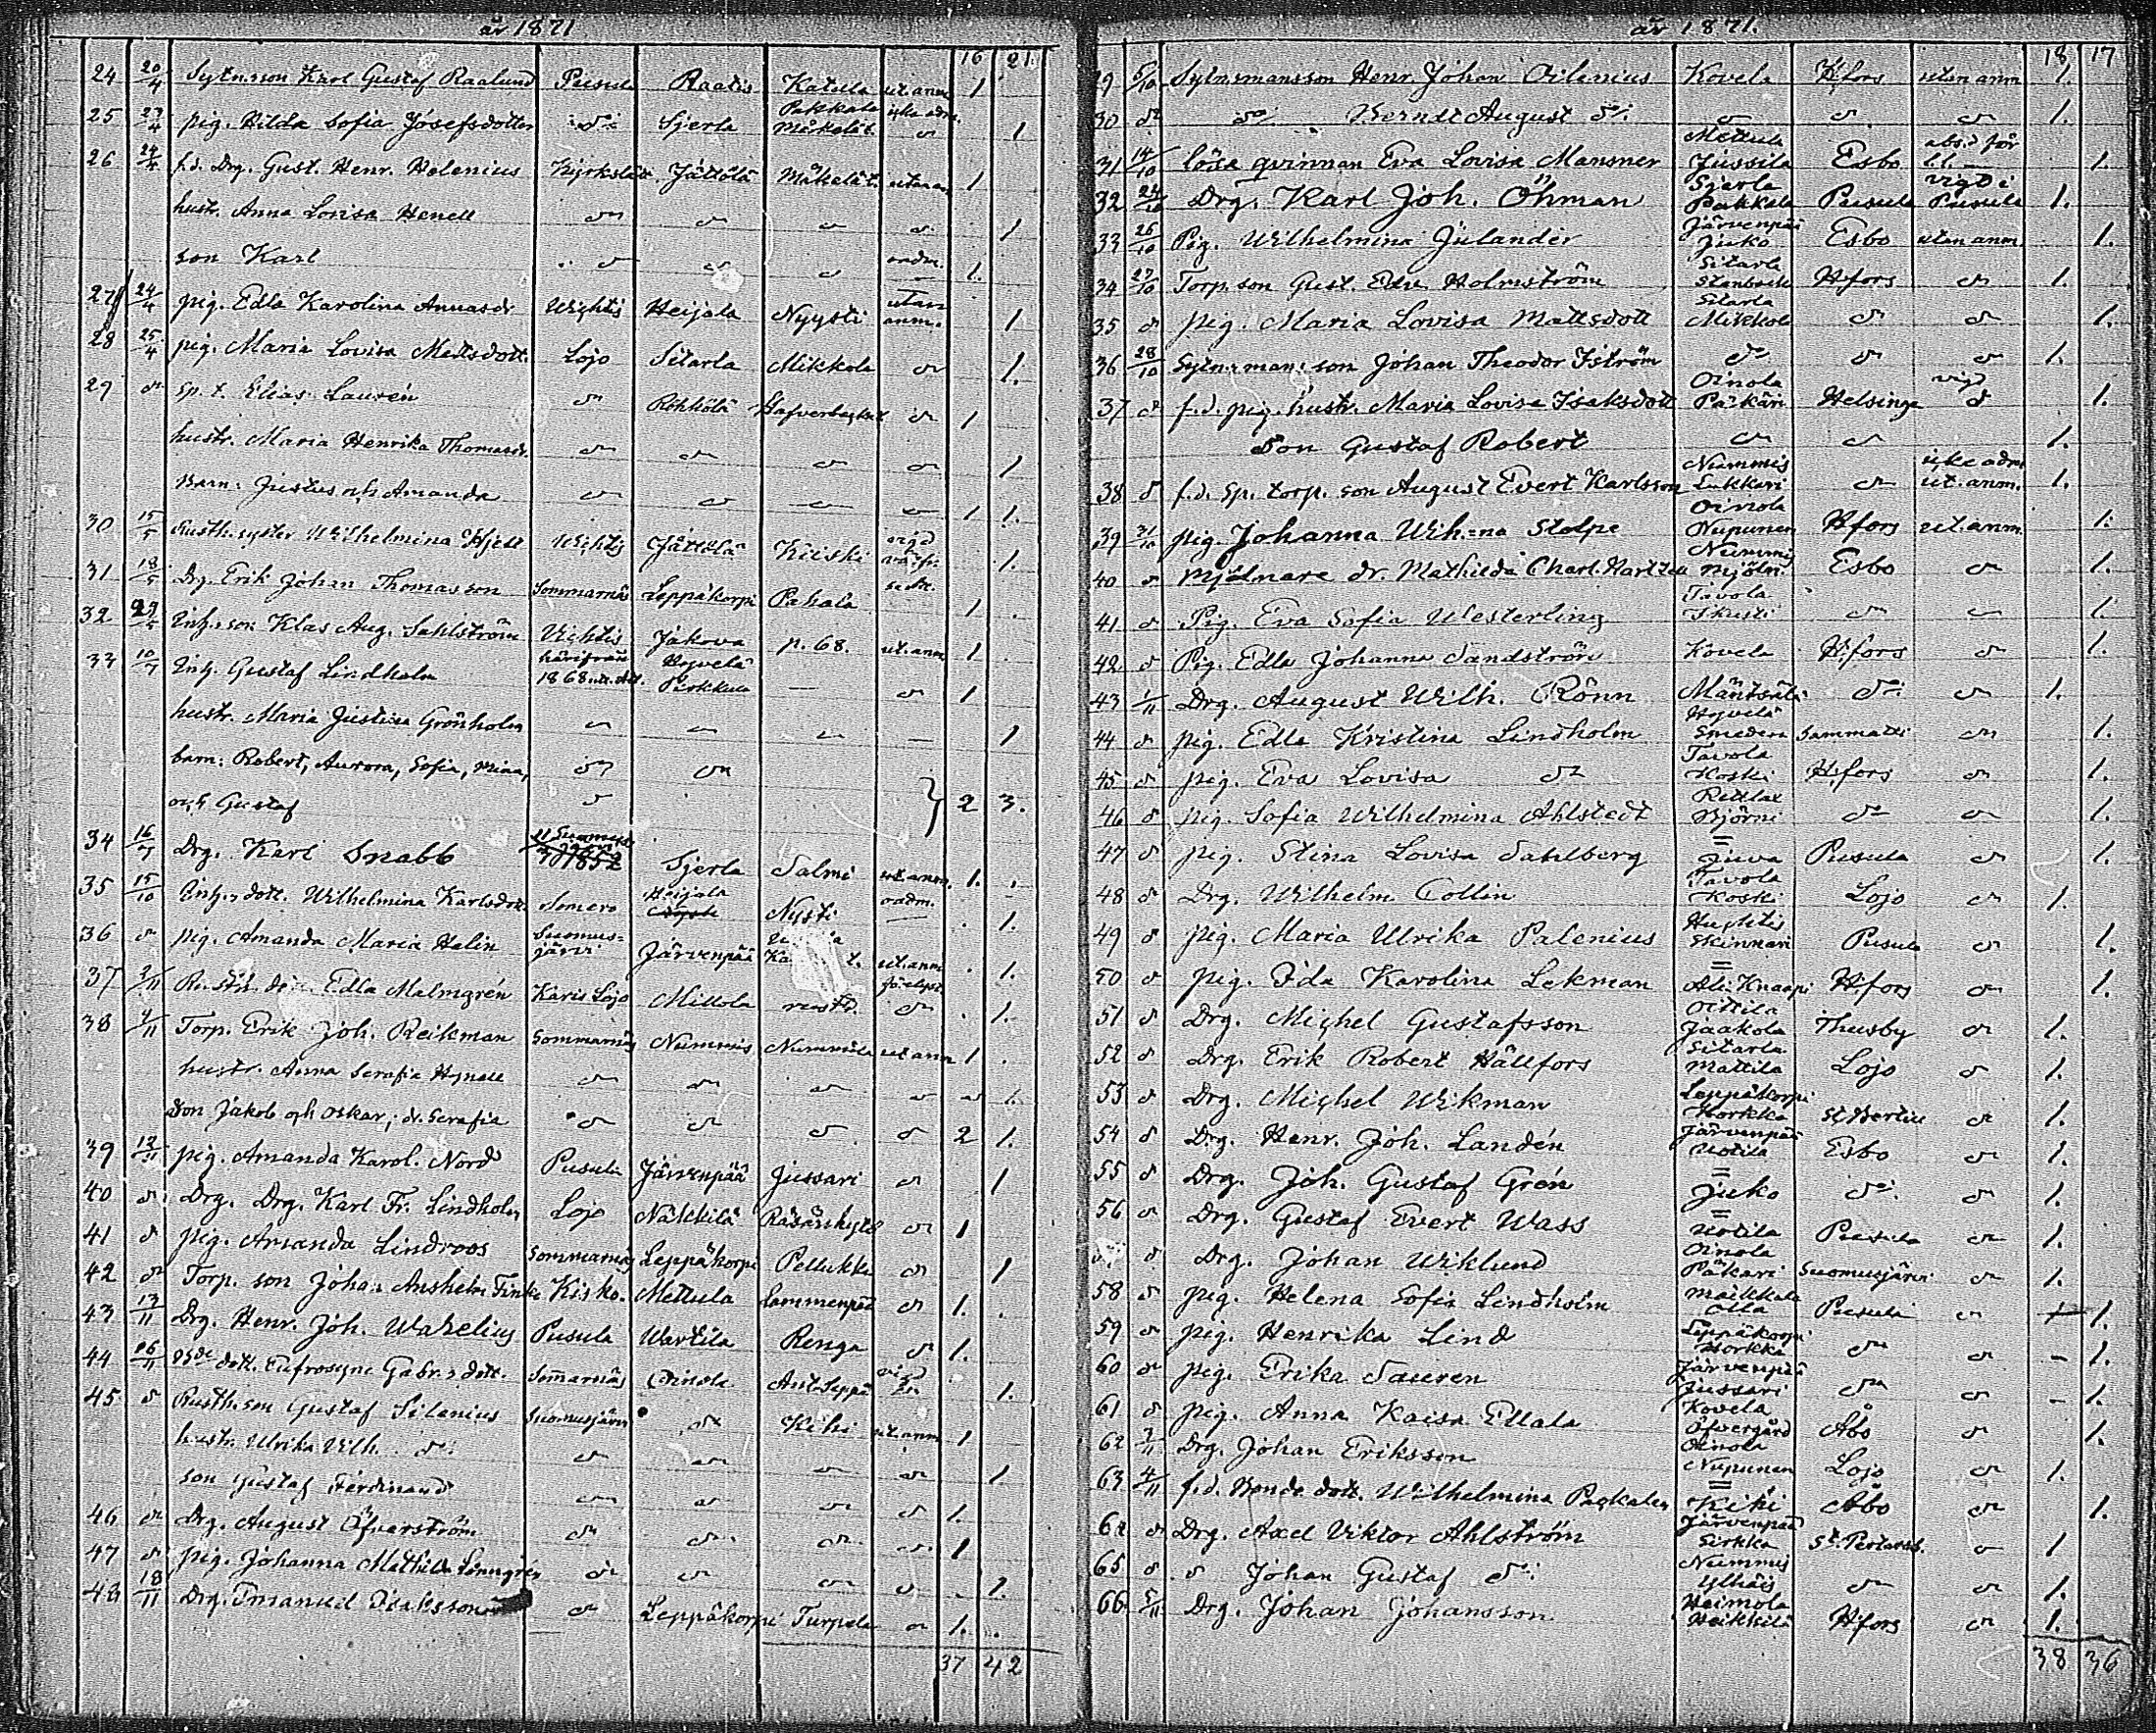 år 1871
16 21.
24 20/4 Sytn.son Karl Gustaf Raalund Pusula Raatis Katula ut. anm 1
25 23/4 pig. Hilda Sofia Josefsdotter d:o Sjerla Pakkala Mäkelä t. icke adm. d:o 1
26 24/4 f.d. Drg. Gust. Henr. Helenius Kyrkslätt Jättölä Mäkelä t. utan an 1
hustr. Anna Lovisa Henell d:o d:o d:o d:o 1
son Karl d:o d:o d:o oadm. 1.
27 24/4 pig. Edla Karolina Annasdr Wichtis Heijala Nyysti utan anm. 1
28 25/4 pig. Maria Lovisa Mattsdott. Lojo Sitarla Mikkola d:o 1.
29 d:o sp. t. Elias Laurén d:o Röhkölä d:o 1
hustr. Maria Henrika Thomasdr. d:o d:o d:o d:o 1
Barn: Justus och Amanda d:o d:o d:o 1 1.
30 15/5 Rusth. syster Wilhelmina Hjelt Wichtis Jättölä Kiiski vigd 1.
31 18/5 Drg. Erik Johan Thomasson Sommarnäs Leppäkorpi Pahala 1
32 Inh. son Klas Aug. Sahlström Vichtis Jakova p. 68. ut. anm 1
33 10/7 Inh. Gustaf Lindholm härifrån 1868 u. att. Hyvelä Pirkkula — d:o 1
hustr. Maria Justina Grönholm 1
barn: Robert, Aurora, Sofia, Mina, d:o d:o
och Gustaf d:o } 2 3.
34 16/7 Drg. Karl Snabb 1852 Sjerla Salmi ut anm. 1.
35 15/10 Inh. dott. Wilhelmina Karlsdott. Somero Heijala Nysti oadm. 1.
36 d:o pig. Amanda Maria Halin Suomusjärvi Järvenpää ut. anm 1.
37 2/11 Edla Malmgrén Karis Lojo Millola rusth. d:o 1.
38 4/11 Torp. Erik Joh. Reikman Sommarnäs Nummis Nummela ut anm 1
hustr. Anna Serafia d:o d:o d:o 1.
Son Jakob och Oskar; dr. Serafia d:o d:o d:o d:o 2 1.
39 12/11 pig. Amanda Karol. Nord Pusula Järvenpää Jussari d:o 1
40 d:o Drg. Drg. Karl Fr. Lindholm Lojo Näkkilä Räsäskylä d:o 1
41 d:o pig. Amanda Lindroos Sommarnäs Leppäkorpi Pellukka d:o 1
42 d:o Torp. son Johan Anshelm Finke Kisko. Mettula Lammenpää d:o 1.
43 13/11 Drg. Henr. Joh. Wahelius Pusula Wartila Renga d:o 1.
44 16/11 dott. Eufrosyne Gabr:s dott. Sommarnäs Oinola Ant. Seppä vigd 1.
45 d:o Rusth. son Gustaf Silenius Suomusjärvi d:o Kihi ut. anm 1
hustr. Ulrika Vilh. d:o d:o d:o d:o d:o 1.
son Gustaf Ferdinand d:o d:o d:o d:o 1.
46 d:o Drg. August Öfverström d:o d:o d:o d:o 1
47 d:o pig. Johanna Mathilda Lönngrén d:o d:o d:o d:o 1.
48 18/11 Drg. Emanuel Isaksson d:o Leppäkorpi Turpela d:o 1.
37 42
år 1871.
18 17
29 5/10 Sytnsmansson Henr. Johan Oilenius Kovela Hfors utan anm 1.
30 d:o d:o Berndt August d:o d:o d:o d:o 1.
31 14/10 lösa qvinnan Eva Lovisa Mansner Mettula Jussila Esbo abs.d för l.l. 1.
32 24/10 Drg. Karl Joh. Öhman Sjerla Pakkala Pusula vigd i Pusula 1.
33 25/10 Pig. Wilhelmina Julander Järvenpää Juko Esbo utan anm. 1.
34 27/10 Torp. son Gust. Edv. Holmström Sitarla Stenbacka Hfors d:o 1.
35 d:o pig. Maria Lovisa Mattsdott Sitarla Mikkola d:o d:o 1.
36 28/10 Sytnsmans son Johan Theodor Iström d:o d:o d:o 1.
37 d:o f.d. pig. hustr. Maria Lovisa Isaksdott Oinola Päkäri Helsinge vigd d:o 1.
Son Gustaf Robert d:o d:o 1.
38 d:o f.d. sp. torp. son August Evert Karlsson Nummis Lukkari d:o icke adm ut. anm. 1.
39 31/10 pig. Johanna Wilh:na Stolpe Oinola Nupunen Hfors ut. anm. 1.
40 d:o Mjölnare dr. Mathilda Charl. Hartzell Nummis mjöln. Esbo d:o 1.
41 d:o Pig. Eva Sofia Westerling Tavola Skusti d:o d:o 1.
42 d:o Pig. Edla Johanna Sandström Kovela Hfors d:o 1.
43 1/11 Drg. August Wilh. Rönn Mäntsälä d:o d:o 1.
44 d:o pig. Edla Kristina Lindholm Hyvelä Smeders Sammatti d:o 1.
45 d:o pig. Eva Lovisa d:o Tavola Koski Hfors d:o 1.
46 d:o pig. Sofia Wilhelmina Ahlstedt Retlax Björni d:o d:o 1.
47 d:o pig. Stina Lovisa Sahlberg = Juva Pusula d:o 1.
48 d:o Drg. Wilhelm Collin Tavola Koski Lojo d:o 1.
49 d:o pig. Maria Ulrika Palenius Huhtis Skinnari Pusula d:o 1.
50 d:o pig. Ida Karolina Lekman = Ali-Knaapi Hfors d:o 1.
51 d:o Drg. Michel Gustafsson Oittila Jaakola Thusby d:o 1.
52 d:o Drg. Erik Robert Hällfors Sitarla Mattila Lojo d:o 1.
53 d:o Drg. Michel Wikman Leppäkorpi Horkka St. Bertils d:o 1.
54 d:o Drg. Henr. Joh. Landén Järvenpää Uotila Esbo d:o 1.
55 d:o Drg. Joh. Gustaf Grén = Juko d:o d:o 1.
56 d:o Drg. Gustaf Evert Wass = Uotila Pusula d:o 1.
d:o Drg. Johan Wiklund Oinola Päkäri Suomusjärvi d:o 1.
58 d:o pig. Helena Sofia Lindholm Maikkala Olla Pusula d:o 1.
59 d:o pig. Henrika Lind Leppäkorpi Horkka d:o d:o - 1.
60 d:o pig. Erika Sauren Järvenpää Jussari d:o d:o - 1.
61 d:o pig. Anna Kaisa Ellala Kovela Öfvergård Åbo d:o 1.
62 3/11 Drg. Johan Eriksson Oinola Nupunen Lojo d:o 1.
63 4/11 f.d. Bonde dott. Wilhelmina Packalen = Kihi Åbo d:o 1.
64 d:o Drg. Axel Viktor Ahlström Järvenpää Sirkka St. Petersb. d:o 1
65 d:o d:o Johan Gustaf d:o Nummis Ylhäis d:o d:o 1.
66 5/11 Drg. Johan Johansson Heimola Heikkilä Hfors d:o 1.
38 36